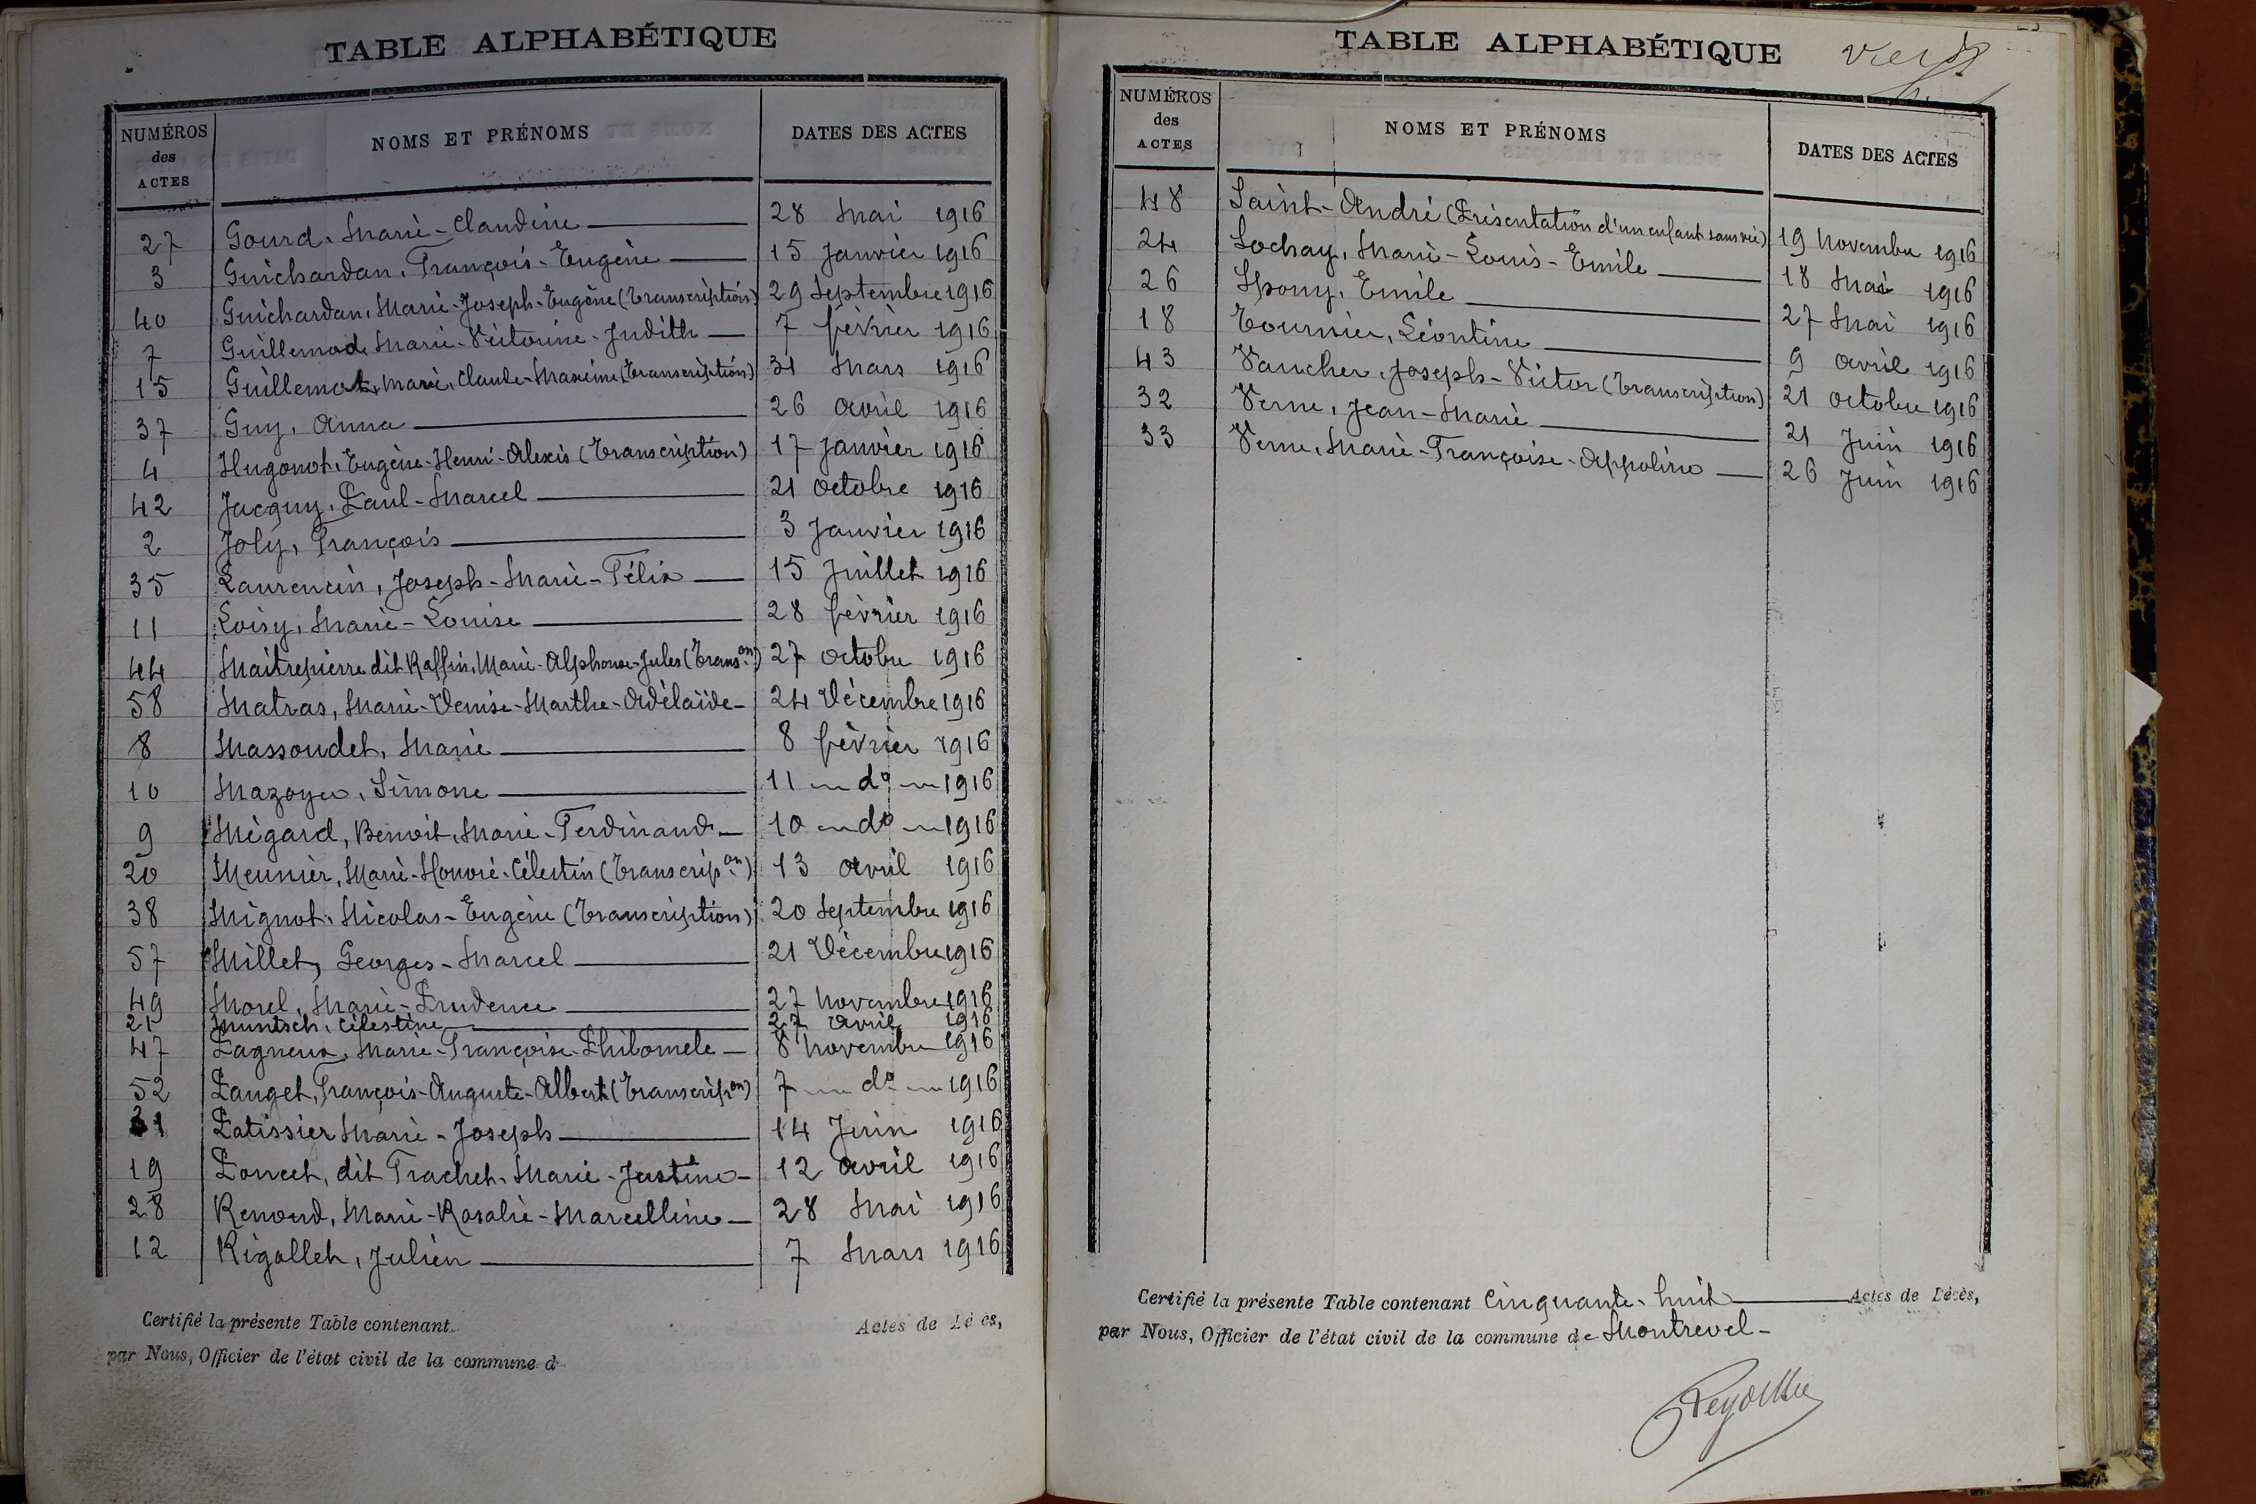 TABLE ALPHABÉTIQUE
NUMÉROS des ACTES NOMS ET PRÉNOMS DATES DES ACTES
27 Gourd, Marie-Claudine 28 Mai 1916
3 Guichardan, François-Eugène 15 Janvier 1916
40 Guichardan, Marie-Joseph-Eugène (Transcription) 29 Septembre 1916
7 Guillemod, Marie-Victorine-Judith 7 février 1916
15 Guillemot, Marie, Claude-Maxime (Transcription) 31 Mars 1916
37 Guy, Anna 26 avril 1916
4 Hugonot, Eugène-Henri-Alexis (Transcription) 17 Janvier 1916
42 Jacquy, Paul-Marcel 21 Octobre 1916
2 Joly, François 3 Janvier 1916
35 Laurencin, Joseph-Marie-Félix 15 Juillet 1916
11 Loisy, Marie-Louise 28 février 1916
44 Maitrepierre dit Raffin, Marie-Alphonse-Jules (Trans.on) 27 octobre 1916
58 Matras, Marie-Denise-Marthe-Adélaïde 24 Décembre 1916
8 Massoudet, Marie 8 février 1916
10 Mazoyer, Simone 11 do 1916
9 Mégard, Benoit, Marie-Ferdinand 10 do 1916
20 Meunier, Marie-Honoré-Célestin (Transcrip.on) 13 avril 1916
38 Mignot, Nicolas-Eugène (Transcription) 20 Septembre 1916
57 Millet, Georges-Marcel 21 Décembre 1916
49 Morel, Marie-Prudence 27 Novembre 1916
21 Muntsch, Célestine 27 avril 1916
47 Pagneux, Marie-Françoise-Philomele 8 Novembre 1916
52 Panget, François-Auguste-Albert (Transcrip.on) 7 do 1916
31 Patissier Marie-Joseph 14 Juin 1916
19 Poncet, dit Trachet, Marie-Justine 12 avril 1916
28 Renoud, Marie-Rosalie-Marcelline 28 Mai 1916
12 Rigollet, Julien 7 Mars 1916
Certifié la présente Table contenant Actes de Décès,
par Nous, Officier de l'état civil de la commune d
TABLE ALPHABÉTIQUE
NUMÉROS des ACTES NOMS ET PRÉNOMS DATES DES ACTES
48 Saint-André (Présentation d'un enfant sans vie) 19 Novembre 1916
24 Sochay, Marie-Louis-Emile 18 Mai 1916
26 Spony, Emile 27 Mai 1916
18 Tournier, Léontine 9 avril 1916
43 Vaucher, Joseph-Victor (Transcription) 21 octobre 1916
32 Verne, Jean-Marie 21 Juin 1916
33 Verne, Marie-Françoise-Appoline 26 Juin 1916
Certifié la présente Table contenant Cinquante-huit Actes de Décès,
par Nous, Officier de l'état civil de la commune de Montrevel